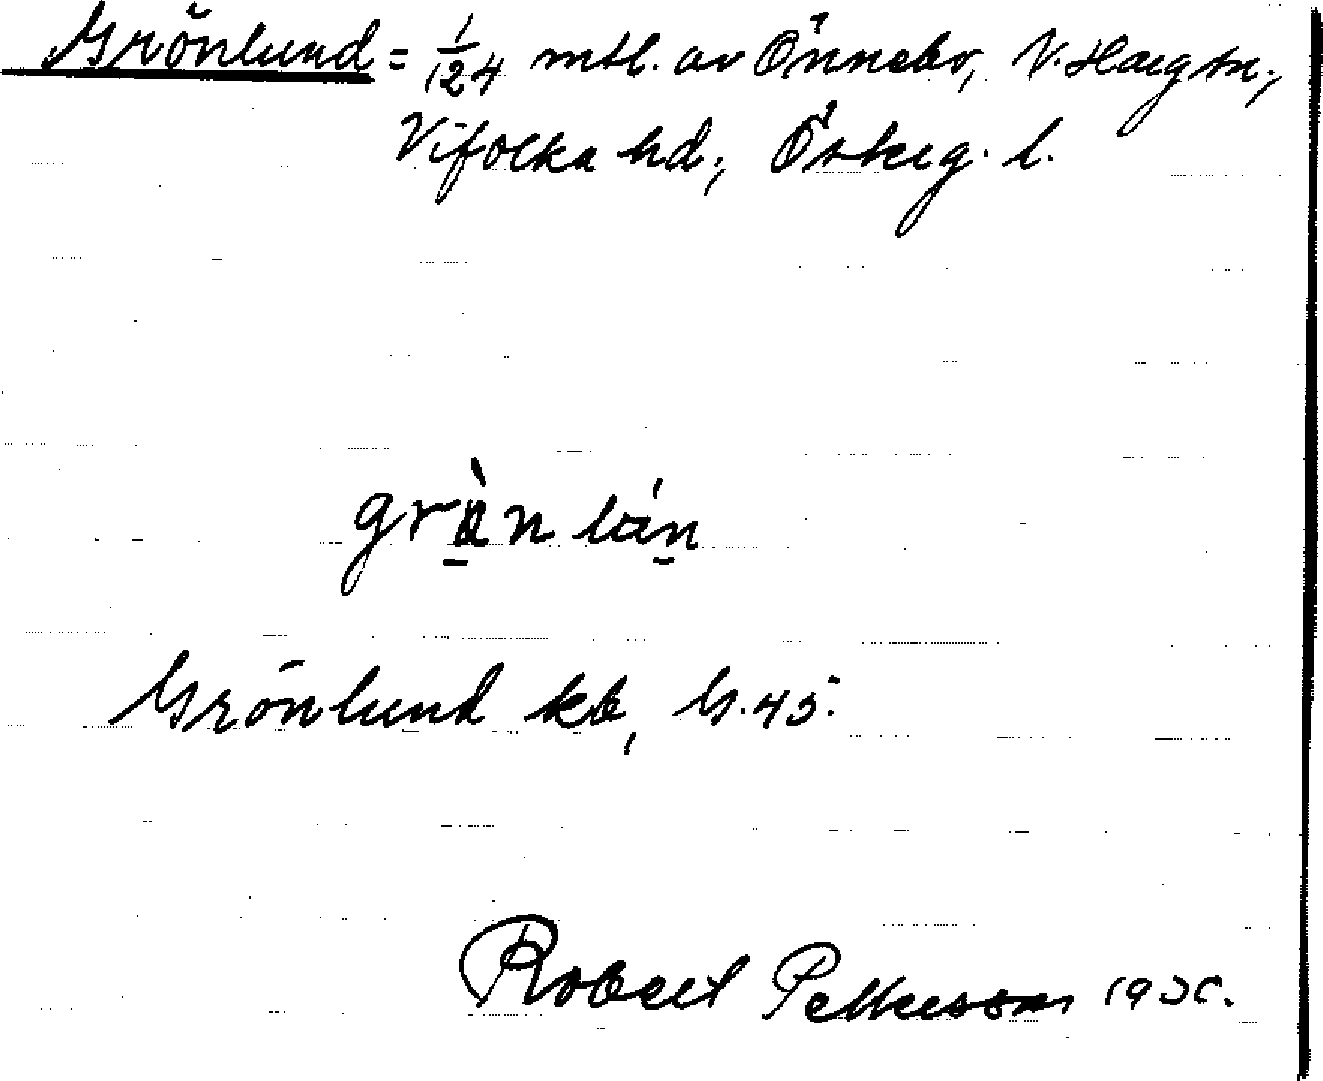 Grönlund = 1/124 mtl. av Önnebo, V. Harg sn.,
Vifolka hd., Österg. l.
grönlun
Grönlund kb, G. 45.
Robert Pettersson